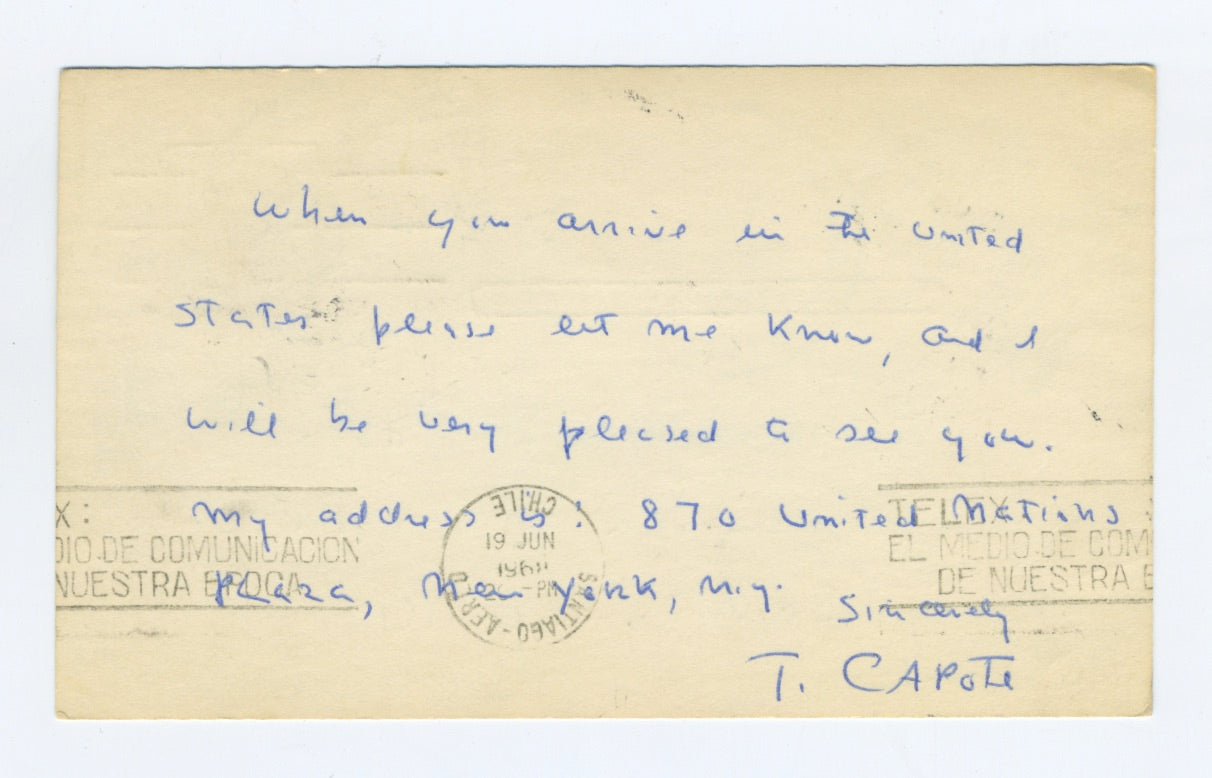 When you arrive in the United
States please let me know, and I
will be very pleased to see you.
My address is: 870 United Nations
Plaza, New York, N.Y.
Sincerely
T. CAPOTE
X:
DIO DE COMUNICACION
NUESTRA EPOCA
CHILE
19 JUN
PM
SANTIAGO-AER
TELEX:
EL MEDIO DE COM
DE NUESTRA E